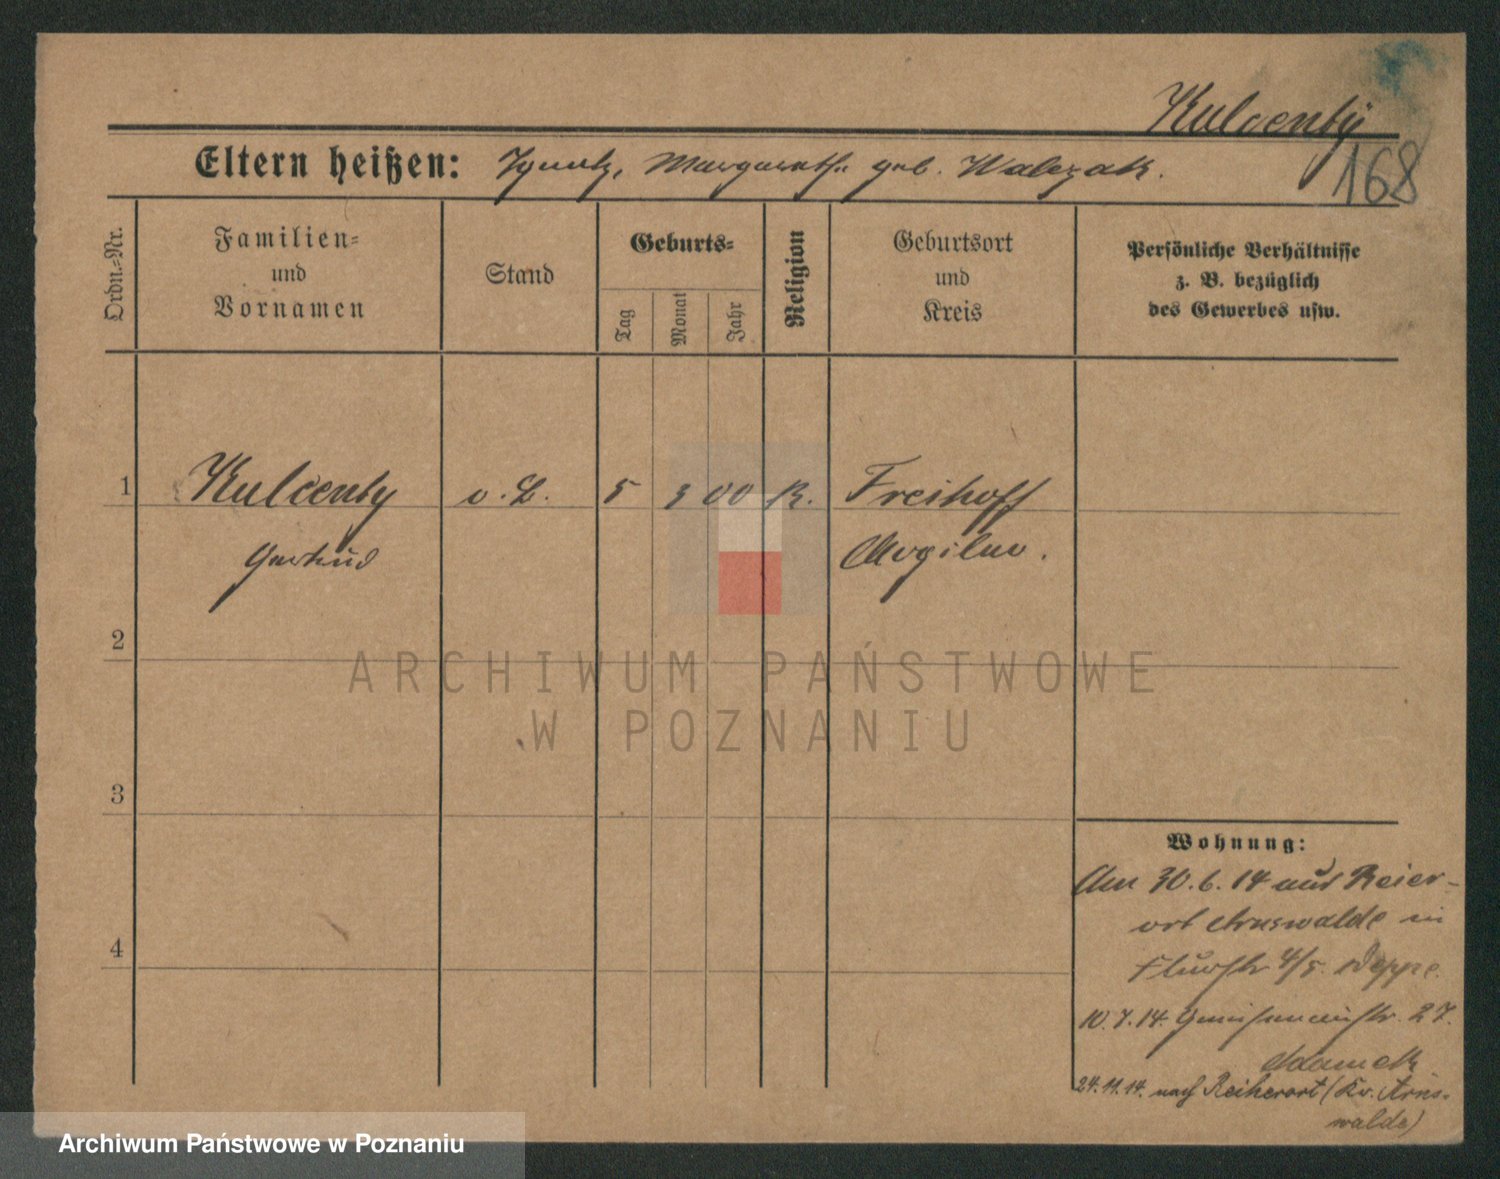 Kulcenty
168
Eltern heißen: Ignatz, Margareth. geb. Walczak.
Ordn.-Nr.
Familien-
und
Vornamen
Stand
Geburts-
Tag
Monat
Jahr
Religion
Geburtsort
und
Kreis
Persönliche Verhältnisse
z. B. bezüglich
des Gewerbes usw.
1 Kulcenty o. B. 5 3 00 K. Freihoff
Gertrud Mogilno.
2
ARCHIWUM PAŃSTWOWE
W POZNANIU
3
4
Wohnung:
Am 30.6.14 aus Reier-
ort Arnswalde in
Flurstr 4/5. Deppe.
10.7.14. Gneisenaustr. 27.
Adamek
24.11.14. nach Reiherort (Kr. Arns-
walde)
Archiwum Państwowe w Poznaniu